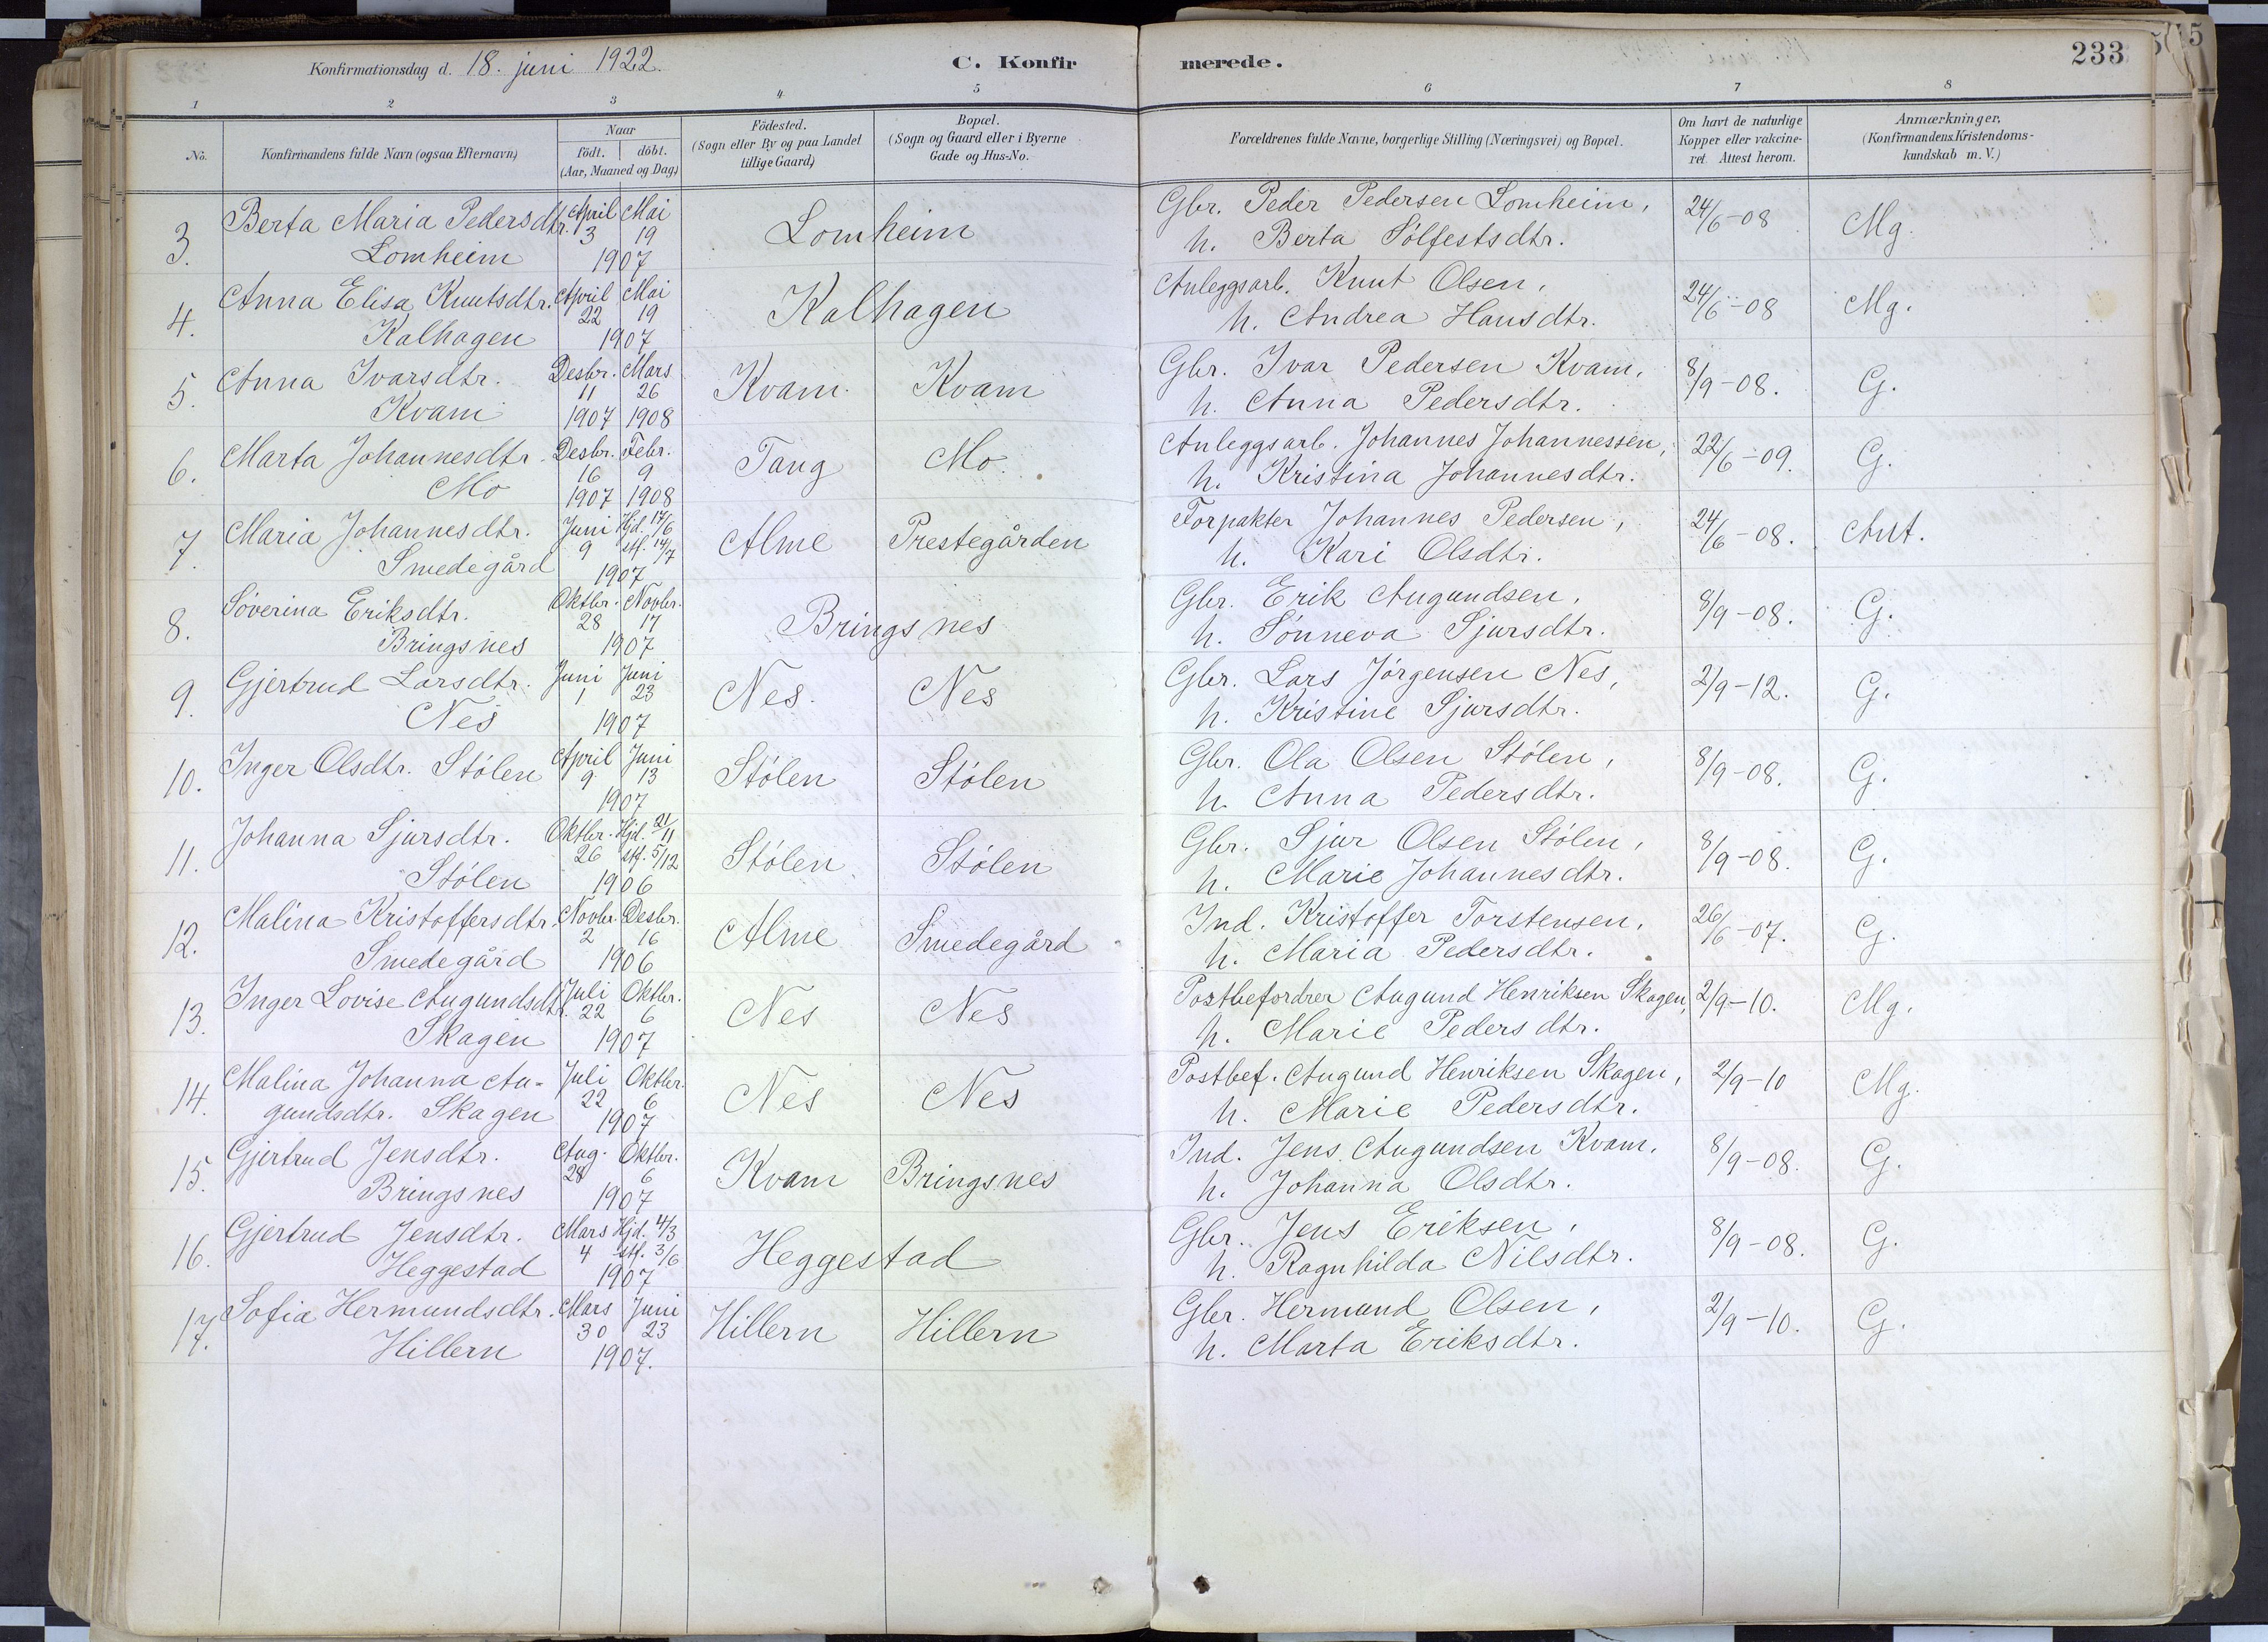 Konfirmationsdag d. 18. juni 1922.
C. Konfirmerede.
233
1 2 3 4 5 6 7 8
No.
Konfirmandens fulde Navn (ogsaa Efternavn)
Naar
födt. döbt.
(Aar, Maaned og Dag)
Födested.
(Sogn eller By og paa Landet
tillige Gaard)
Bopæl.
(Sogn og Gaard eller i Byerne
Gade og Hus-No.
Forældrenes fulde Navne, borgerlige Stilling (Næringsvei) og Bopæl.
Om havt de naturlige
Kopper eller vakcine-
ret. Attest herom.
Anmærkninger,
(Konfirmandens Kristendoms-
kundskab m. V.)
3. Berta Maria Pedersdtr. April Mai Lomheim Gbr. Peder Pedersen Lomheim, 24/6-08 Mg.
Lomheim 3 19 h. Berta Sølfestsdtr.
1907
4. Anna Elisa Knutsdtr. April Mai Kalhagen Anleggsarb. Knut Olsen, 24/6-08 Mg.
Kalhagen 22 19 h. Andrea Hansdtr.
1907
5. Anna Ivarsdtr. Desbr. Mars Kvam Kvam Gbr. Ivar Pedersen Kvam, 8/9-08. G.
Kvam 11 26 h. Anna Pedersdtr.
1907 1908
6. Marta Johannesdtr. Desbr. Febr. Tang Mo. Anleggsarb. Johannes Johannessen, 22/6-09. G.
Mo 16 9 h. Kristina Johannesdtr.
1907 1908
7. Maria Johannesdtr. Juni Hjd. 17/6 Alme Prestegården Forpakter Johannes Pedersen, 24/6-08. Ant.
Smedegård 9 stf. 14/7 h. Kari Olsdtr.
1907
8. Søverina Eriksdtr. Oktbr. Novbr. Bringsnes Gbr. Erik Augundsen, 8/9-08. G.
Bringsnes 28 17 h. Sønneva Sjursdtr.
1907
9. Gjertrud Larsdtr. Juni Juni Nes. Nes Gbr. Lars Jørgensen Nes, 2/9-12. G.
Nes 1 23 h. Kristine Sjursdtr.
1907
10. Inger Olsdtr. Stølen April Juni Stølen Stølen Gbr. Ola Olsen Stølen, 8/9-08. G.
9 13 h. Anna Pedersdtr.
1907
11. Johanna Sjursdtr. Oktbr. Hjd. 21/11 Stølen Stølen Gbr. Sjur Olsen Stølen, 8/9-08. G.
Stølen 26 stf. 5/12 h. Marie Johannesdtr.
1906
12. Malina Kristoffersdtr. Novbr. Desbr. Alme Smedegård Ind. Kristoffer Torstensen, 26/6-07. G.
Smedegård 2 16 h. Maria Pedersdtr.
1906
13. Inger Lovise Augundsdtr. Juli Oktbr. Nes Nes Postbefordrer Augund Henriksen Skagen, 2/9-10. Mg.
Skagen 22 6 h. Marie Pedersdtr.
1907
14. Malina Johanna Au- Juli Oktbr. Nes Nes Postbef. Augund Henriksen Skagen, 2/9-10 Mg.
gundsdtr. Skagen 22 6 h. Marie Pedersdtr.
1907
15. Gjertrud Jensdtr. Aug. Oktbr. Kvam Bringsnes Ind. Jens Augundsen Kvam, 8/9-08. G.
Bringsnes 28 6 h. Johanna Olsdtr.
1907
16. Gjertrud Jensdtr. Mars Hjd. 4/3 Heggestad Gbr. Jens Eriksen, 8/9-08. G.
Heggestad 4 stf. 3/6 h. Ragnhilda Nilsdtr.
1907
17. Sofia Hermundsdtr. Mars Juni Hillern Hillern Gbr. Hermund Olsen, 2/9-10. G.
Hillern 30 23 h. Marta Eriksdtr.
1907.